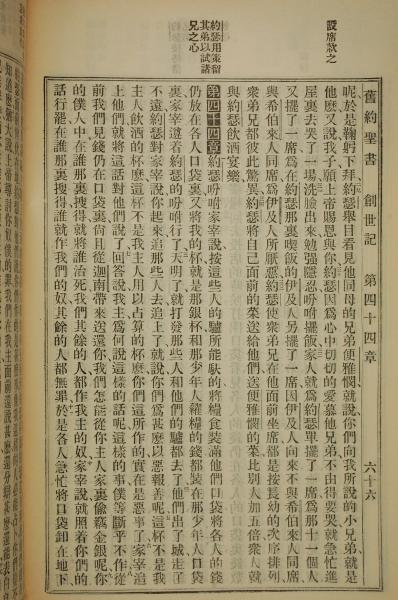 舊約聖書 創世記 第四十四章 六十六
設席款之
呢於是鞠躬下拜約瑟舉目看見他同母的兄弟便雅憫就說你們向我所說的小兄弟就是
他麼又說我子願上帝賜恩與你約瑟因爲心中切切的愛慕他兄弟不由得要哭就急忙進
屋裏去哭了一塲洗臉出來勉強隱忍吩咐擺飯家人就爲約瑟單擺了一席爲那十一個人
又擺了一席爲在約瑟那裏喫飯的伊及人另擺了一席因伊及人向來不與希伯來人同席
與希伯來人同席爲伊及人所厭惡約瑟使衆弟兄在他面前坐席都是按長幼的次序排列
衆弟兄都彼此驚異約瑟將自己面前的菜送給他們送便雅憫的菜比別人加五倍衆人就
與約瑟飲酒宴樂
約瑟用策留
其弟以試諸
兄之心
第四十四章約瑟吩咐家宰說按這些人的驢所能馱的將糧食裝滿他們口袋將各人的錢
仍放在各人口袋裏又將我的杯就是那銀杯和那少年人糴糧的錢都裝在那少年人口袋
裏家宰遵着約瑟的吩咐行了天明了就打發那些人和他們的驢都去了他們出了城走了
不遠約瑟對家宰說你起來追那些人去追上了就說你們爲甚麼以惡報善呢這杯不是我
主人飲酒的杯麼這杯不是我主人用以占算的杯麼你們這所作的實在是惡事了家宰追
上他們就將這話對他們說了回答說我主爲何說這樣的話呢這樣的事僕等斷乎不作從
前我們見錢仍在口袋裏尙且從迦南帶來送還你我們怎能從你主人家裏偷竊金銀呢你
的僕人中在誰那裏搜得就將誰治死我們其餘的人都作我主的奴家宰說就照着你們的
話行罷在誰那裏搜得誰就作我們的奴其餘的人都無罪於是各人急忙將口袋卸在地下